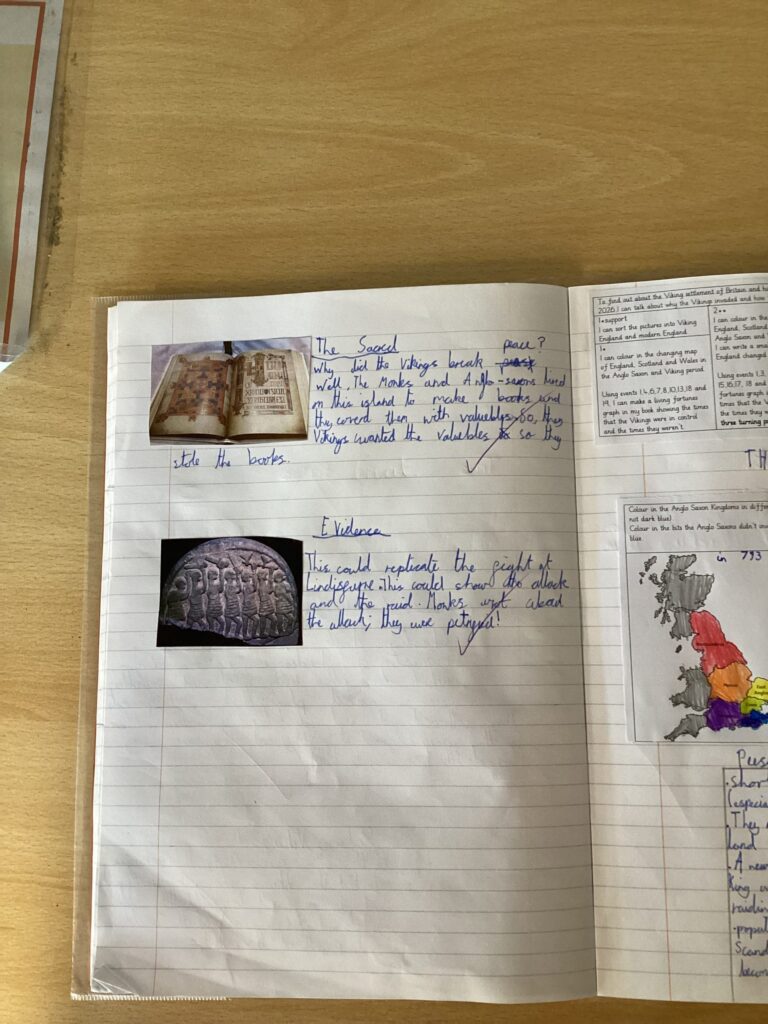 The Sacred
why did the Vikings break peace?
Well. The Monks and Anglo-saxons lived
on this island to make books and
they coverd them with valuebles. So, they
Vikings wanted the valuebles so they
stole the books.
Evidence
This could replicate the fight at
Lindisfarne. This could show the attack
and the raid. Monks about
the attack; they were petrified!
To find out about the Viking settlement of Britain and h
2026 I can talk about why the Vikings invaded and how
1*support
I can sort the pictures into Viking
England and modern England
1*
I can colour in the changing map
of England, Scotland and Wales in
the Anglo Saxon and Viking period
Using events 1,4,6,7,8,10,13,18 and
19, I can make a living fortunes
graph in my book showing the times
that the Vikings were in control
and the times they weren't.
2**
I can colour in the
England, Scotland
Anglo Saxon and
I can write a
England changed
Using events 1,3,
15,16,17, 18 and
fortunes graph
times that the V
the times they w
three turning p
TH
Colour in the Anglo Saxon Kingdoms in diff
not dark blue)
Colour in the bits the Anglo Saxons didn't
blue.
in 793
Northumbria
Mercia
East
Anglia
Pus
short
(especia
They
land
A new
king
raidin
popul
Scand
becom